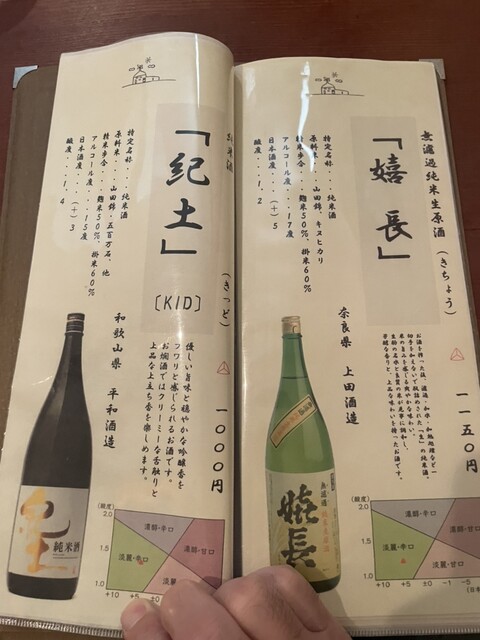 無濾過純米生原酒
「嬉長」
(きちょう)
一一五〇円
特定名称...純米酒
原料米...山田錦、キヌヒカリ
精米歩合...麹米50%、掛米60%
アルコール度...17度
日本酒度...(+)5
酸度...1.2
奈良県 上田酒造
無濾過
純米生原酒
嬉長
(酸度)
2.0
1.5
1.0
濃醇・辛口
濃醇・甘口
淡麗・辛口
+10 +5 ±0 -1 -5
純米酒
「紀土」
[KID]
(きっど)
一〇〇〇円
特定名称...純米酒
原料米...山田錦、五百万石、他
精米歩合...麹米50%、掛米60%
アルコール度...15度
日本酒度...(+)3
酸度...1.4
和歌山県 平和酒造
優しい旨味と穏やかな吟醸香を
フワリと感じられるお酒です。
お燗酒ではクリーミーな舌触りと
上品な立ち香を楽しめます。
紀土
純米酒
(酸度)
2.0
1.5
1.0
濃醇・辛口
濃醇・甘口
淡麗・辛口
淡麗
+10 +5